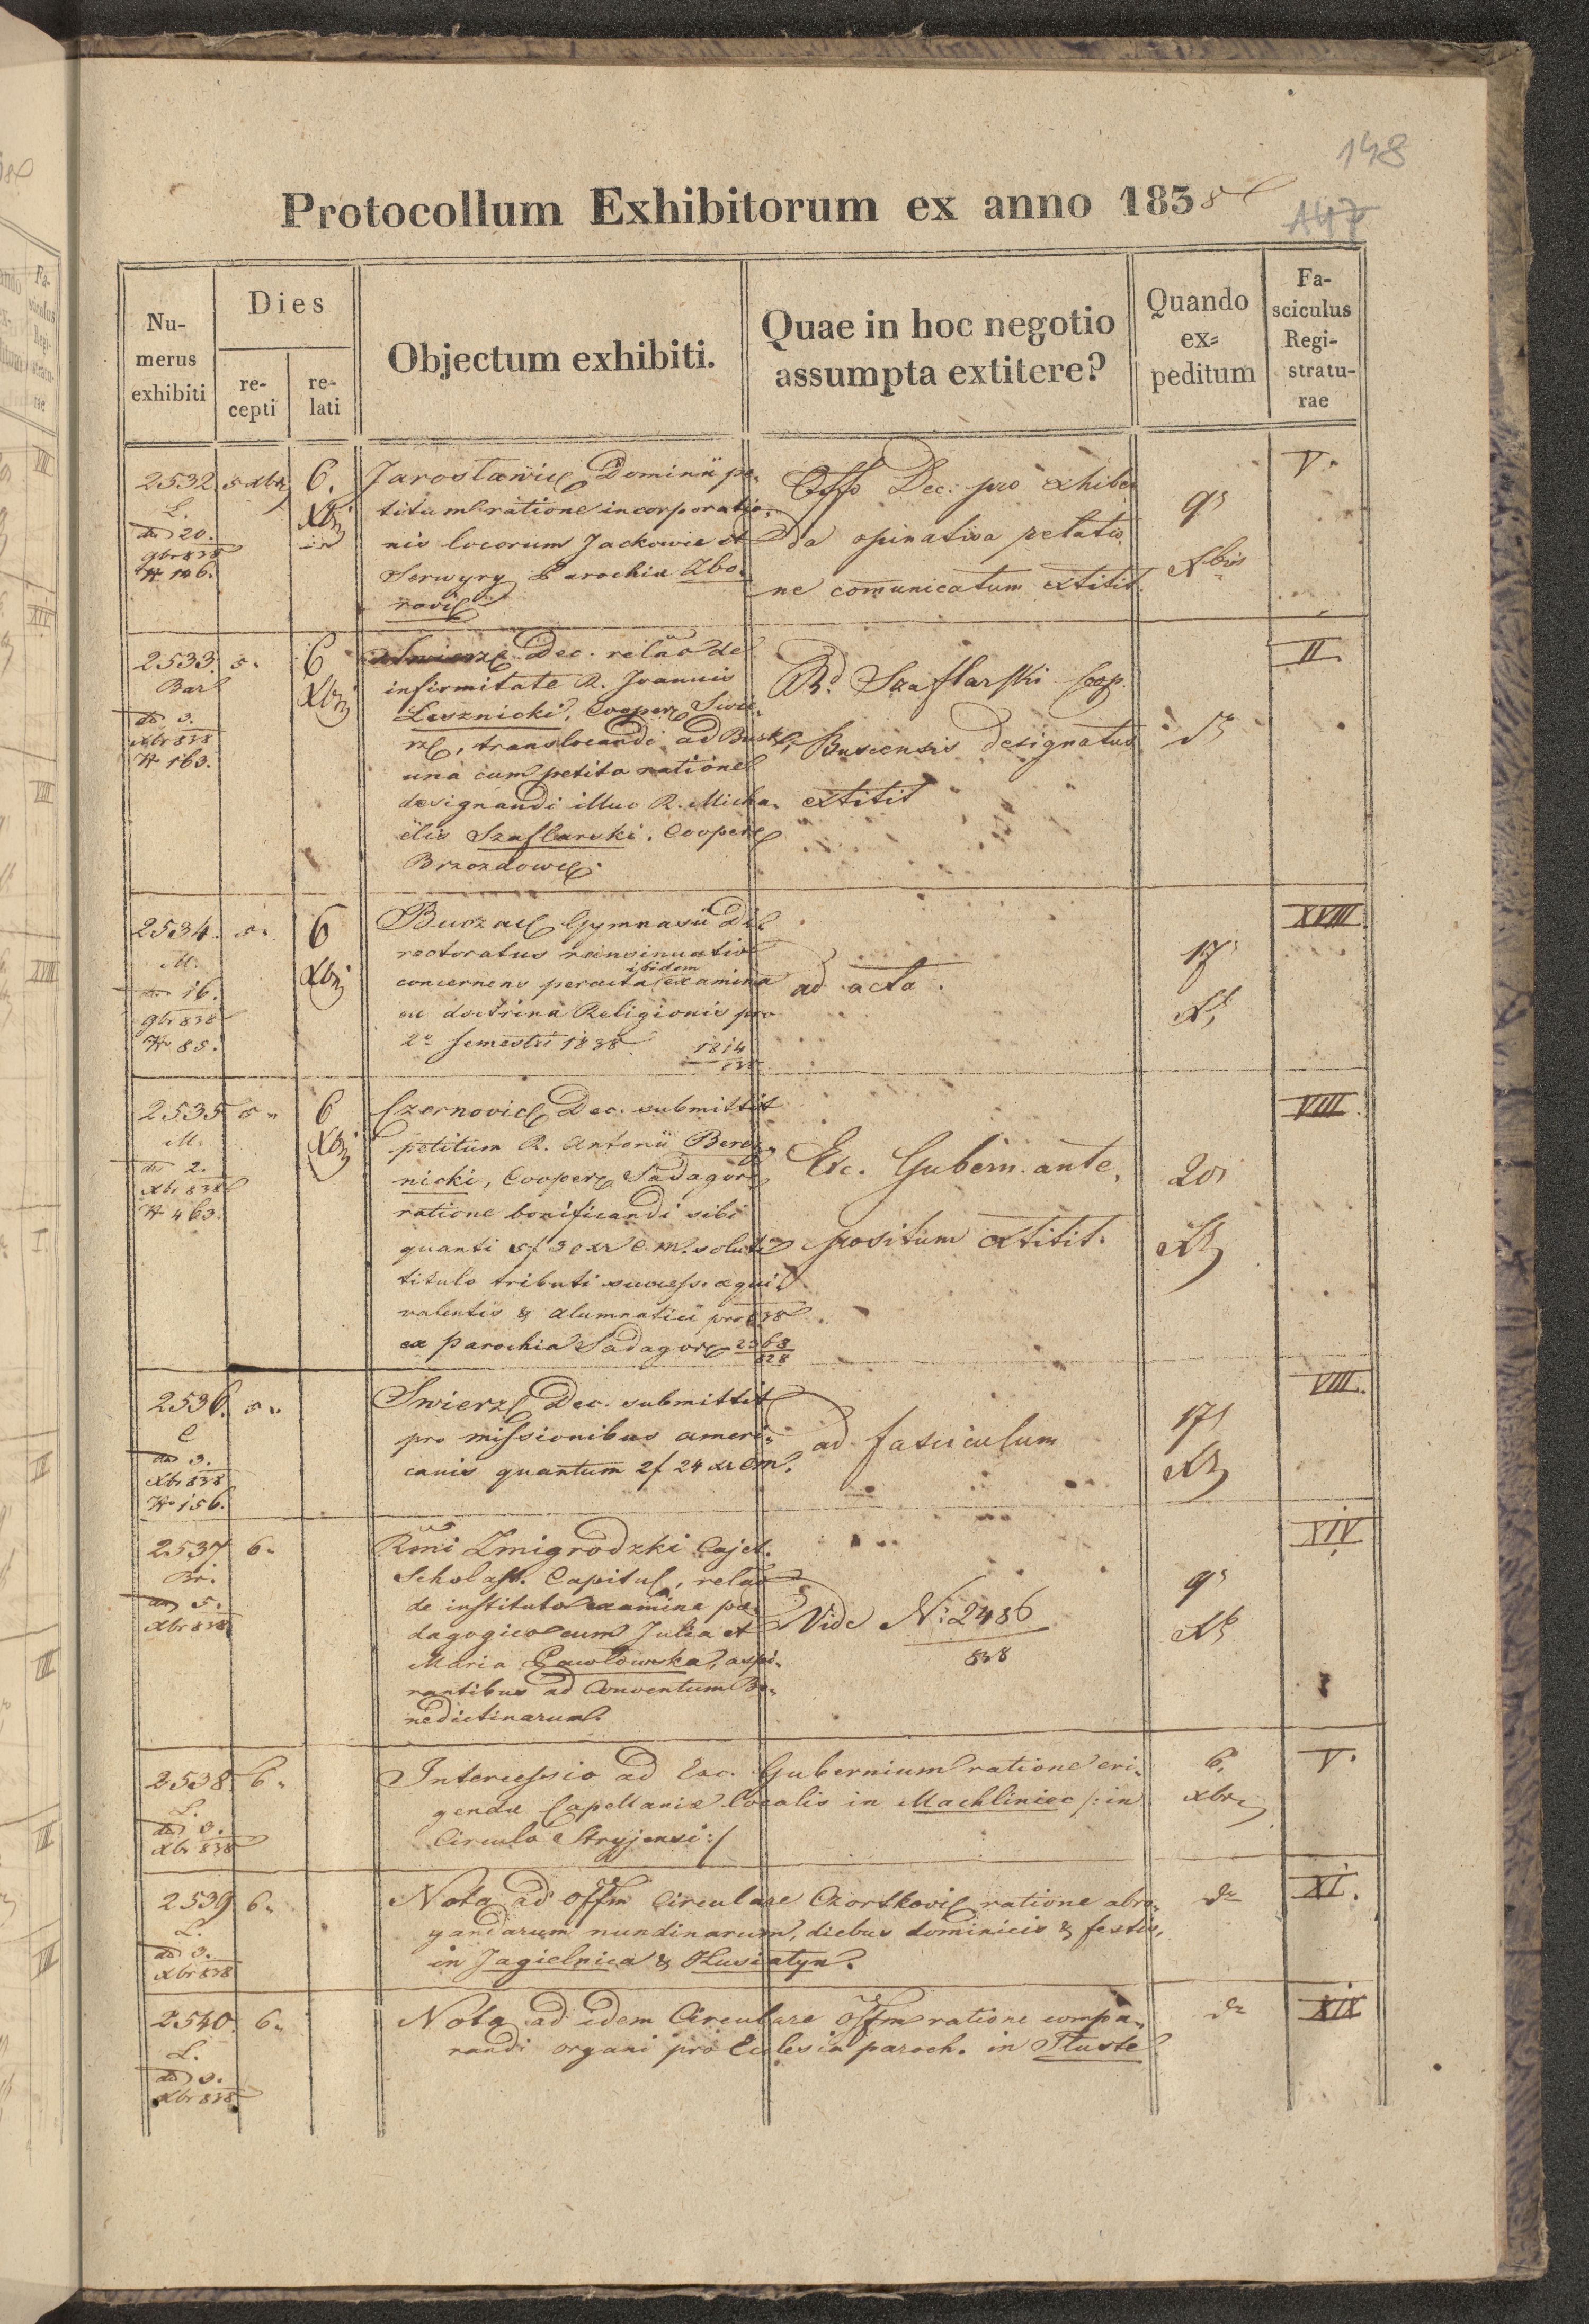 148
147
Protocollum Exhibitorum ex anno 1838
Numerus exhibiti
Dies
recepti
relati
Objectum exhibiti.
Quae in hoc negotio
assumpta extitere?
Quando
ex=
peditum
Fa-
sciculus
Regi-
stratu-
rae
2532 5 xbr 6.
L.
dd 20.
9br 838
N 146.
Jaroslawic Dominii pe-
titum ratione incorporatio-
nis locorum Jackowce et
Serwyry Parochia Zbo-
rovic
Offo Dec. pro exhiben
da opinativa relatio
ne comunicatum extitit.
9
Xbris
V.
2533. 5. 6 Xbr
Bar
dd 3.
xbr 838
N 163.
Swierz. Dec. relao de
infirmitate R. Joannis
Lesznicki, Cooper Swie-
rz, translocandi ad Busk
una cum petito ratione
designandi illuc R. Micha-
elis Szaflarski, Cooper
Brzozdowc.
Rd. Szaflarski Coop.
Buscensis designatus
extitit
II.
2534. 5. 6 Xbr
M.
16.
9br 838
N 85.
Buczac Gymnasii Di-
rectoratus reinsinuatio
ibidem
concernens peracta examina
ex doctrina Religionis pro
2o semestri 1838. 1814
838
ad acta.
17
XVIII.
2535 5. 6 Xbr
M.
dd 2.
xbr 838
N 463.
Czernovic Dec. submittit
petitum R. Antonii Berez-
nicki, Cooper Sadagor
ratione bonificandi sibi
quanti 5f 30 xr C.M. soluti
titulo tributi success. aequi
valentis & alumnatici pro 838
ex parochia Sadagor 2368
828
Exc. Gubern. ante-
positum extitit.
20
VIII.
2536. 5.
C
dd 3.
xbr 838
No 156.
Swierz Dec. submittit
pro missionibus ameri-
canis quantum 2f 24 xr CM.
ad fasciculum
17
VIII.
2537 6.
Br.
5.
xbr 838
Rmi Zmigrodzki Cajet.
Scholast. Capitul, relao
de instituto examine pae-
dagogico cum Julia et
Maria Pawlowska, aspi-
rantibus ad Conventum Be-
nedictinarum.
Vide N: 2486
838
9
XIV
2538. 6.
L.
dd 3.
xbr 838
Intercessio ad Exc. Gubernium ratione eri-
gendae Capellaniae localis in Machliniec /: in
Circulo Stryjensi :/
6.
xbr
V.
2539 6.
L.
dd 3.
xbr 838
Nota ad Offm Circulare Czortkovic ratione abro-
gandarum nundinarum, diebus dominicis & festis,
in Jagielnica & Husiatyn.
do
XI.
2540. 6.
L.
dd 3.
xbr 838.
Nota ad idem Circulare Offm ratione compa-
randi organi pro Ecclesia paroch. in Tluste
do
XIX